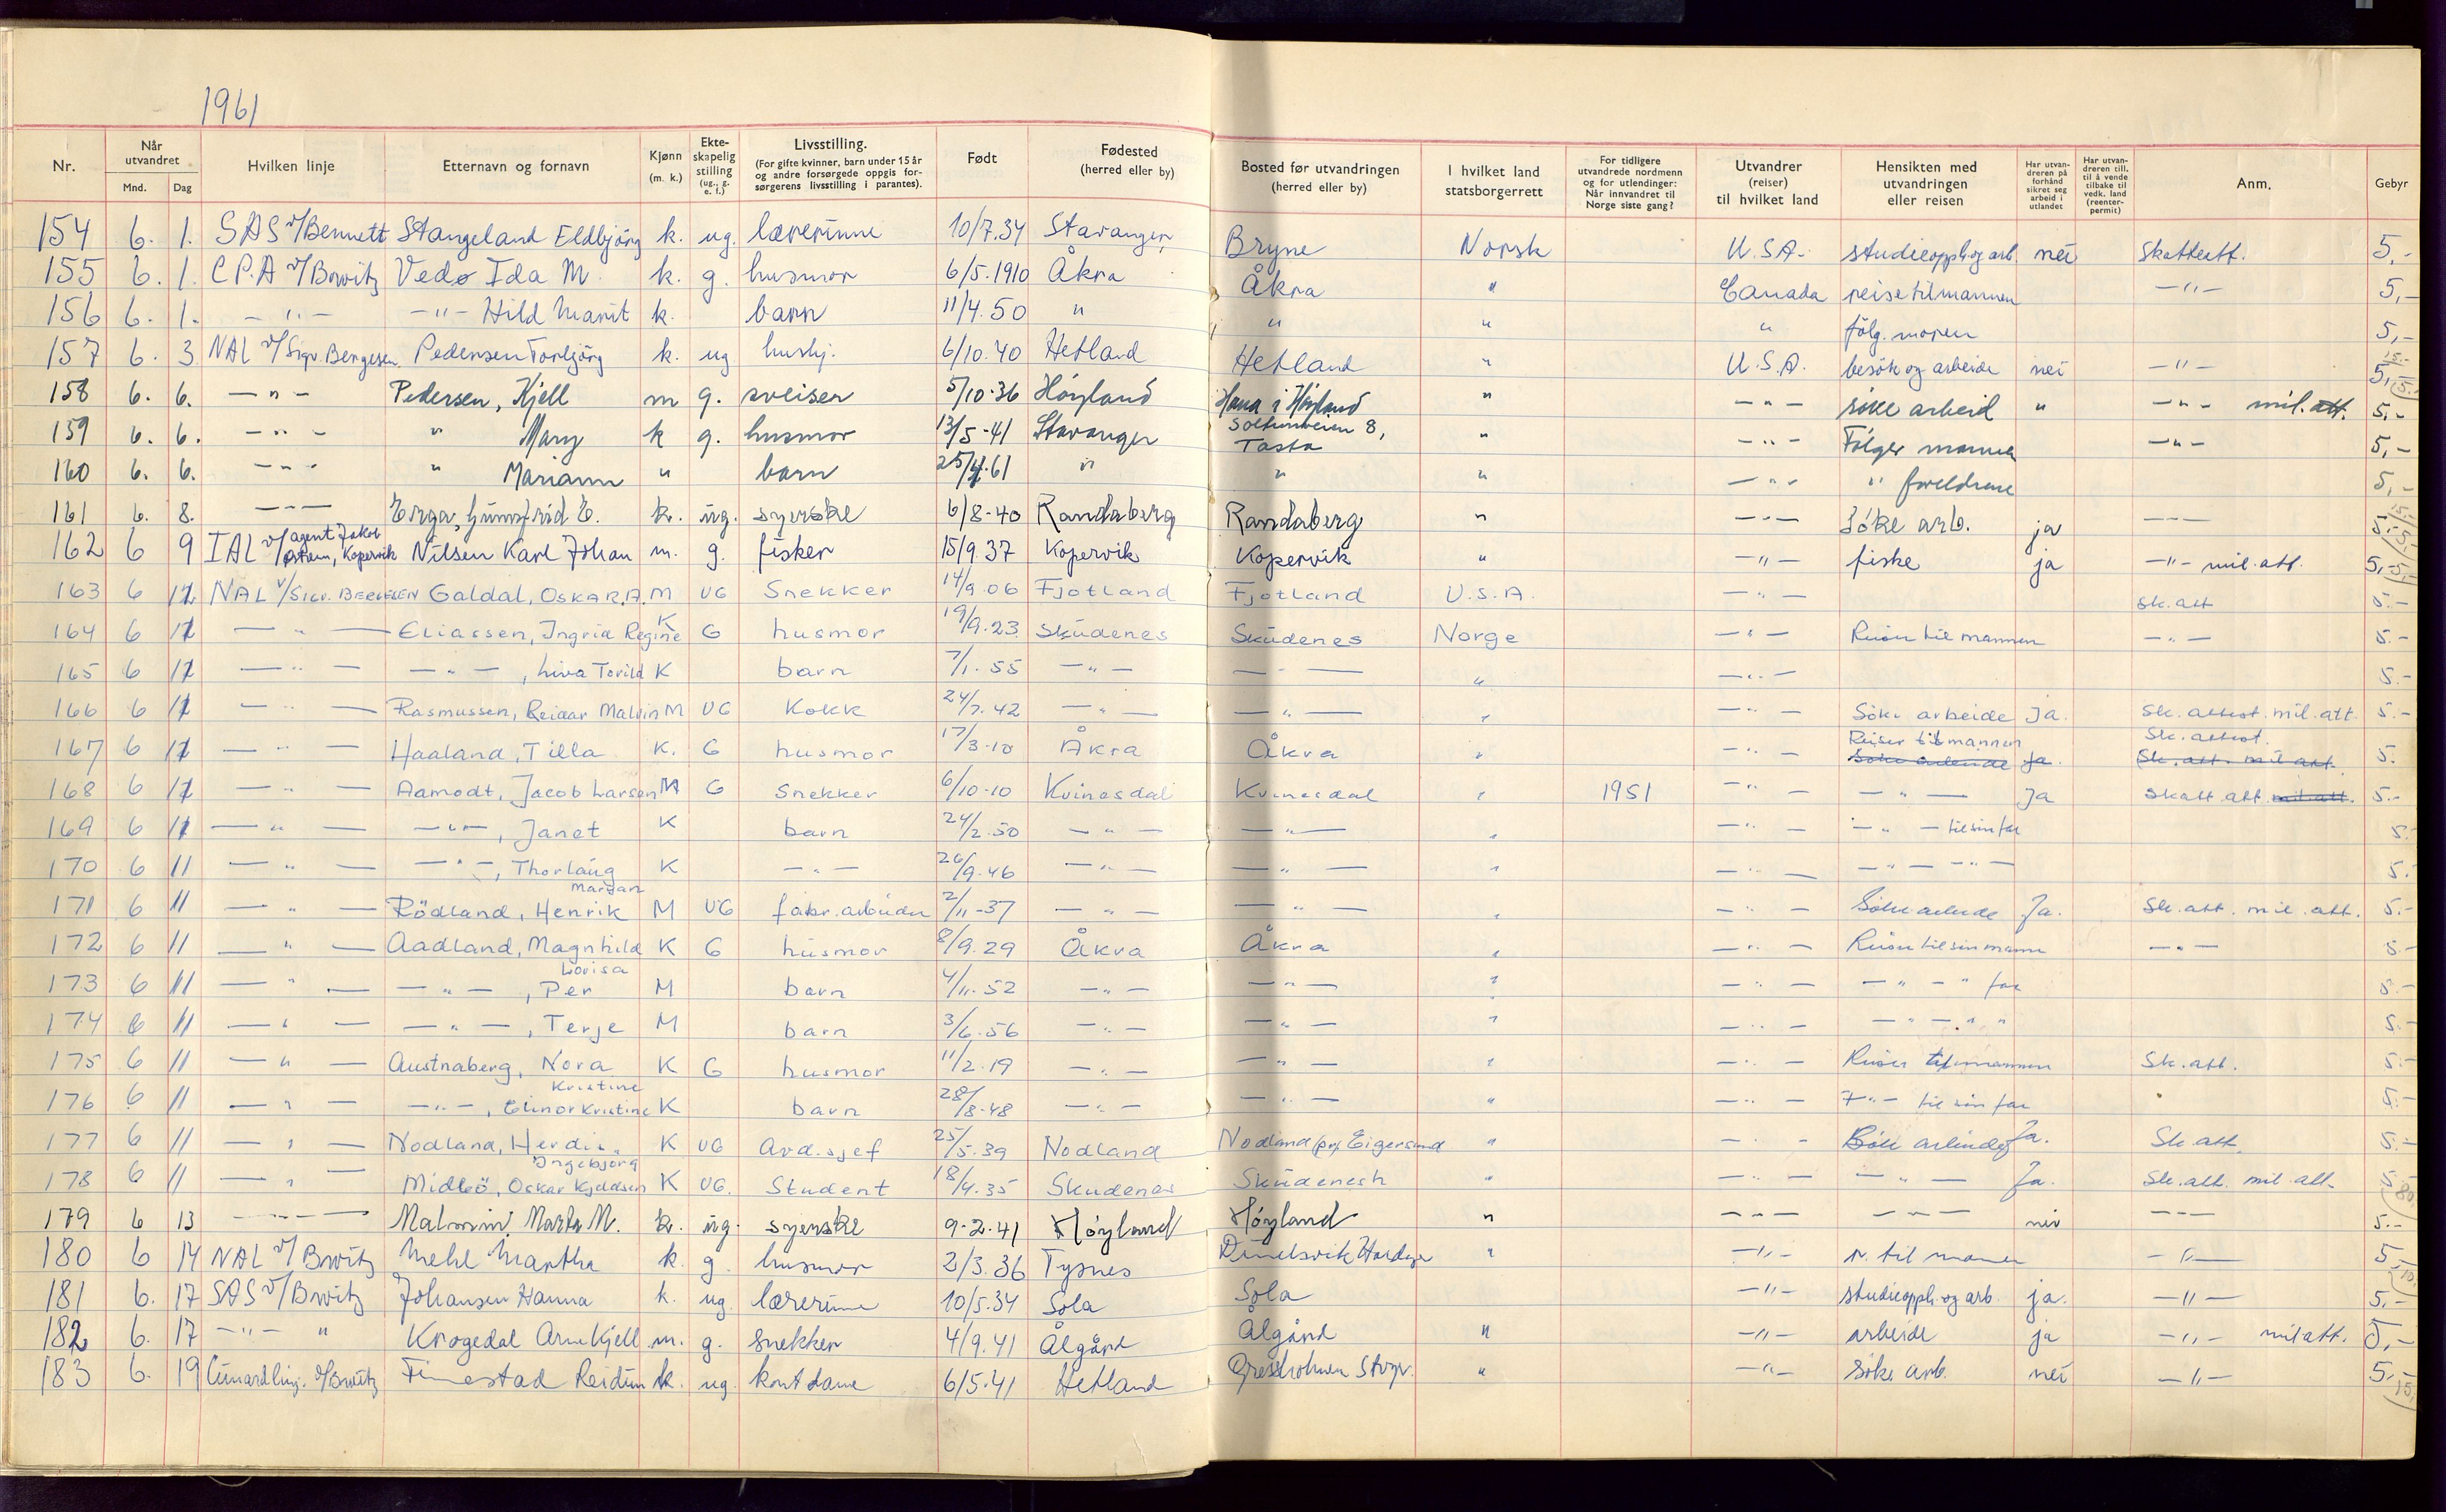 1961
Nr. Når utvandret Mnd. Dag Hvilken linje Etternavn og fornavn Kjønn (m. k.) Ekte-skapelig stilling (ug., g. e. f.) Livsstilling. (For gifte kvinner, barn under 15 år og andre forsørgede oppgis for-sørgerens livsstilling i parantes). Født Fødested (herred eller by) Bosted før utvandringen (herred eller by) I hvilket land statsborgerrett For tidligere utvandrede nordmenn og for utlendinger: Når innvandret til Norge siste gang? Utvandrer (reiser) til hvilket land Hensikten med utvandringen eller reisen Har utvan-dreren på forhånd sikret seg arbeid i utlandet Har utvan-dreren till. til å vende tilbake til vedk. land (reenter-permit) Anm. Gebyr
154 6. 1. SAS v/Bennett Stangeland Eldbjörg k. ug. lærerinne 10/7.34 Stavanger Bryne Norsk U.S.A. studieopph. og arb. nei skatteatt. 5,-
155 6. 1. C.P.A v/Brwitz Vedø Ida M. k. g. husmor 6/5.1910 Åkra Åkra " Canada reise til mannen -"- 5,-
156 6. 1. -"- -"- Hild Marit k. barn 11/4.50 " " " " fölg. moren 5,-
157 6. 3. NAL v/Sigv. Bergesen Pedersen Torbjörg k. ug hushj. 6/10.40 Hetland Hetland " U.S.A. besök og arbeide nei -"- 5,- 15.-
158 6. 6. -"- Pedersen, Kjell m g. sveiser 5/10-36 Höyland Hana i Höyland " -"- söke arbeid " -"- mil.att. 5,-
159 6. 6. -"- " Mary k g. husmor 13/5-41 Stavanger 8, Tasta " -"- Fölger mannen -"- 5,-
160 6. 6. -"- " Mariann " barn 25/4.61 " " " -"- " foreldrene 5,-
161 6. 8. -"- Erga, Gunnfrid E. k. ug. syerske 6/8-40 Randaberg Randaberg " -"- Söke arb. ja -"- 5.-
162 6 9 IAL v/agent Jakob Østrem, Kopervik Nilsen Karl Johan m. g. fisker 15/9.37 Kopervik Kopervik " -"- fiske ja -"- mil.att. 5,-
163 6 12 NAL v/Sigv. BERGESEN Galdal, OSKAR.A. M UG Snekker 14/9.06 Fjotland Fjotland U.S.A. -"- sk.att 5.-
164 6 12 -"- Eliassen, Ingrid Regine K G husmor 19/9.23 Skudenes Skudenes Norge -"- Reiser til mannen -"- 5.-
165 6 12 -"- -"-, Liva Torild K barn 7/1.55 -"- -"- " -"- 5.-
166 6 12 -"- Rasmussen, Reidar Malvin M UG Kokk 24/7.42 -"- -"- " -"- Söke arbeide Ja. Sk. attest. mil.att. 5.-
167 6 12 -"- Haaland, Tilla K. G husmor 17/3-10 Åkra Åkra " -"- Reiser til mannen Söke arbeide Ja. Sk. attest. Sk. att. mil att. 5.
168 6 12 -"- Aamodt, Jacob Larsen M G Snekker 6/10-10 Kvinesdal Kvinesdal " 1951 -"- -"- Ja Skatt att mil att. 5.-
169 6 12 -"- -"-, Janet K barn 24/2.50 -"- -"- " -"- -"- til sin far 5.
170 6 11 -"- -"-, Thorlaug K -"- 26/9.46 -"- -"- " -"- -"- -"- 5.
171 6 11 -"- Rödland, Henrik M UG fabr. arbeider 2/11-37 -"- -"- " -"- Söke arbeide Ja. Sk. att. mil. att. 5.-
172 6 11 -"- Aadland, Magnhild Lovisa K G husmor 8/9.29 Åkra Åkra " -"- Reiser til sin mann -"- 5.-
173 6 11 -"- -"-, Per M barn 4/11.52 -"- -"- " -"- -"- " far 5.-
174 6 11 -"- -"-, Terje M barn 3/6.56 -"- -"- " -"- -"- " " 5.-
175 6 11 -"- Austnaberg, Nora Kristine K G husmor 11/2.19 -"- -"- " -"- Reiser til mannen Sk.att. 5.-
176 6 11 -"- -"-, Elinor Kristine K barn 28/8-48 -"- -"- " -"- -"- til sin far 5.-
177 6 11 -"- Nodland, Herdis Ingebjörg K UG Avd.sjef 25/5.39 Nodland Nodland pr. Eigersund " -"- Söke arbeide Ja. Sk.att. 5.-
178 6 11 -"- Midbö, Oskar Kjeldsen K UG. Student 18/4.35 Skudenes Skudenesh " -"- -"- Ja. Sk. att. mil. att. 5.- 80.
179 6 13 -"- Malmin Marta M. k. ug. syerske 9-2.41 Höyland Höyland " -"- -"- nei -"- 5.-
180 6 14 NAL v/Brwitz Mehl Martha k. g. husmor 2/3.36 Tysnes " -"- r. til mannen -"- 5,- 10.
181 6. 17 SAS v/Brwitz Johansen Hanna k. ug. lærerinne 10/5.34 Sola Sola -"- studieopph. og arb. ja. -"- 5,-
182 6. 17 -"- " Krogedal Arne Kjell m. g. snekker 4/9.41 Ålgård Ålgård " -"- arbeide ja -"- mil att. 5,-
183 6. 19 Cunardlinj. v/Brwitz Finnestad Reidun k. ug. kontdame 6/5.41 Hetland Grasholmen Stvgr. " -"- söke arb. nei -"- 5,- 15.